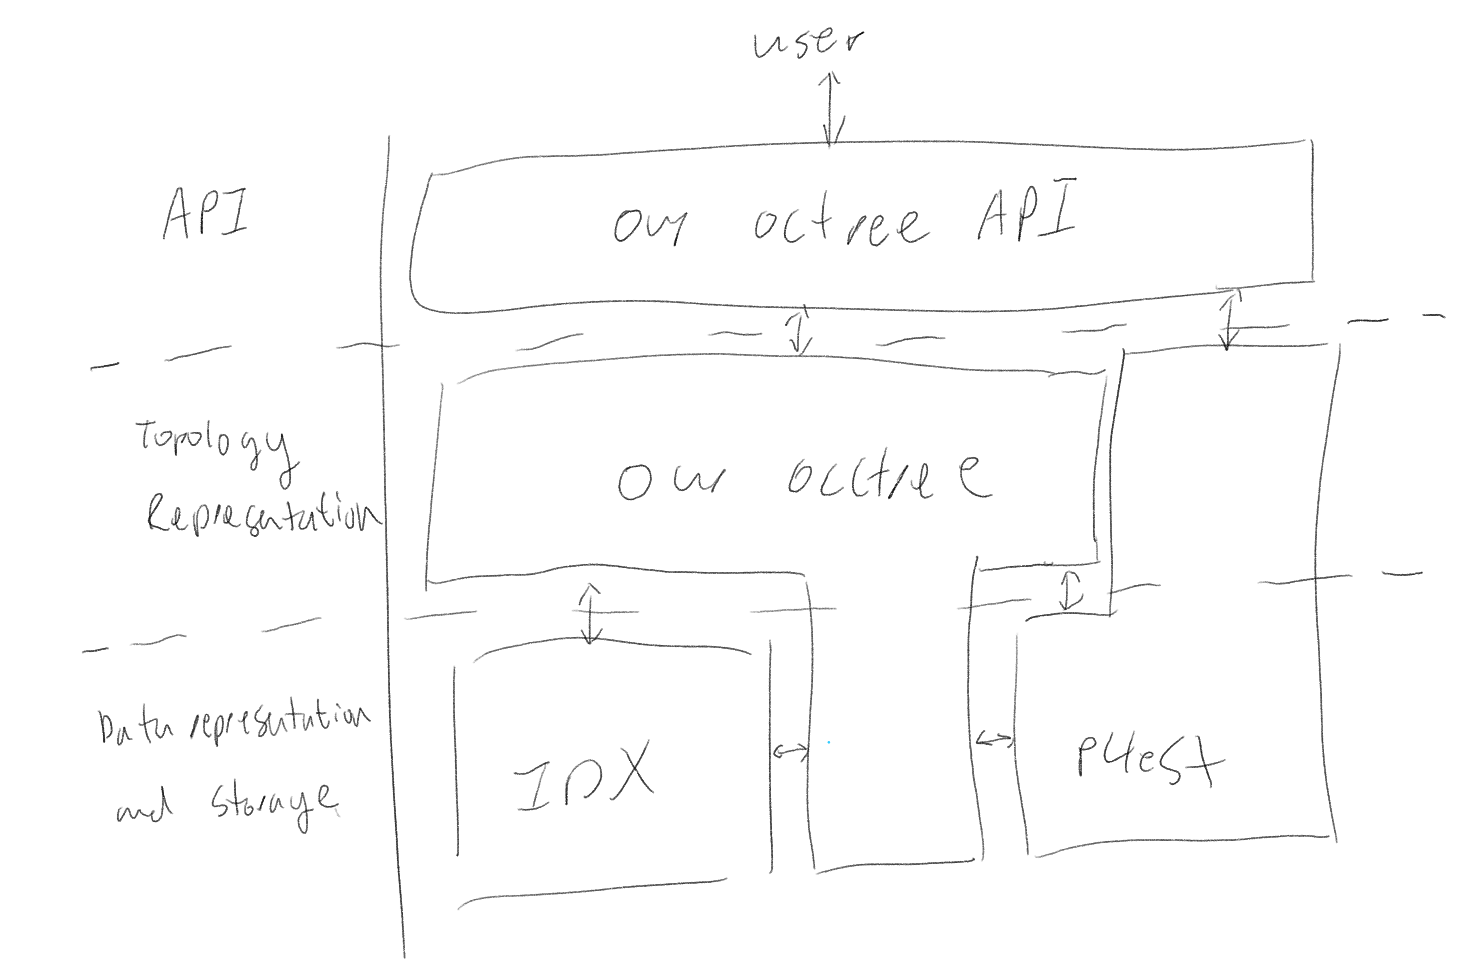 user
API
our octree API
Topology
Representation
our occtree
Data represutation
and storage
IDX
P4est